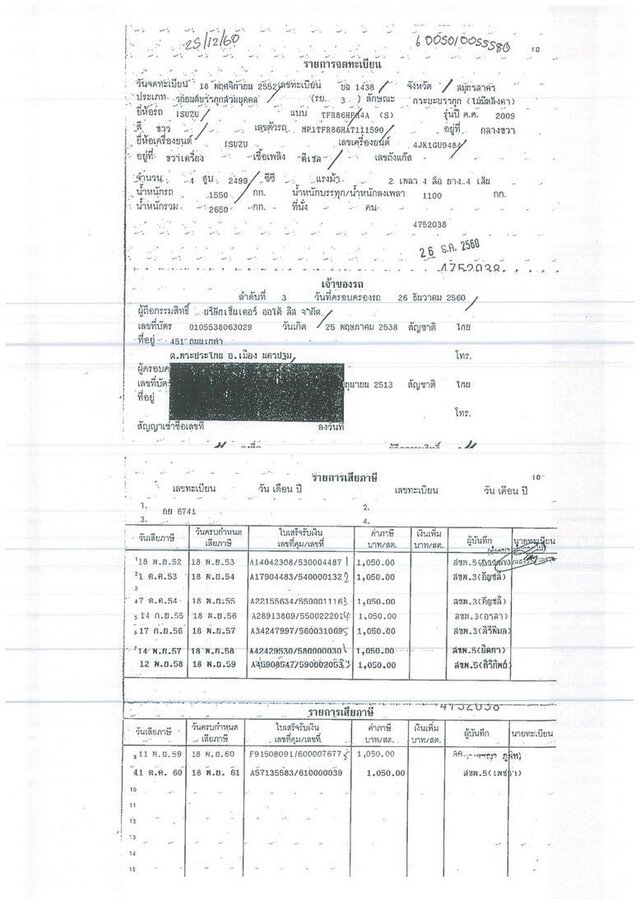 25/12/60
6005010055580
18
รายการจดทะเบียน
วันจดทะเบียน 18 พฤศจิกายน 2552 เลขทะเบียน บง 1438 จังหวัด สมุทรสาคร
ประเภท รถยนต์บรรทุกส่วนบุคคล (รย. 3 ) ลักษณะ กระบะบรรทุก (ไม่มีหลังคา)
ยี่ห้อรถ ISUZU แบบ (S) รุ่นปี ค.ศ. 2009
สี ขาว เลขตัวรถ MP1TFR86HAT111590 อยู่ที่ กลางขวา
ยี่ห้อเครื่องยนต์ ISUZU เลขเครื่องยนต์ 4JK1GU9484
อยู่ที่ ขวาเครื่อง เชื้อเพลิง ดีเซล เลขถังแก๊ส
จำนวน 4 สูบ 2499 ซีซี แรงม้า 2 เพลา 4 ล้อ ยาง 4 เส้น
น้ำหนักรถ 1550 กก. น้ำหนักบรรทุก/น้ำหนักลงเพลา 1100 กก.
น้ำหนักรวม 2650 กก. ที่นั่ง คน
4752038
26 ธ.ค. 2560
4752038
เจ้าของรถ
ลำดับที่ 3 วันที่ครอบครองรถ 26 ธันวาคม 2560
ผู้ถือกรรมสิทธิ์ บริษัทเซ็นเตอร์ ออโต้ ลีส จำกัด
เลขที่บัตร 0105538063029 วันเกิด 25 พฤษภาคม 2538 สัญชาติ ไทย
ที่อยู่ 451
ต.พระประโทน อ.เมือง นครปฐม โทร.
ผู้ครอบค
เลขที่บัตร ถุนายน 2513 สัญชาติ ไทย
ที่อยู่
โทร.
สัญญาเช่าซื้อเลขที่ ลงวันที่
รายการเสียภาษี 16
เลขทะเบียน วัน เดือน ปี เลขทะเบียน วัน เดือน ปี
1. ถย 6741 2.
3. 4.
วันเสียภาษี วันครบกำหนดเสียภาษี ใบเสร็จรับเงินเลขที่คุม/เลขที่ ค่าภาษีบาท/สต. เงินเพิ่มบาท/สต. ผู้บันทึก นายทะเบียน
1 18 พ.ย.52 18 พ.ย.53 A14042308/530004487 1,050.00 สชพ.5
2 1 ต.ค.53 18 พ.ย.54 A17904483/540000132 1,050.00 สชพ.3(อัญชลี)
3
4 7 ต.ค.54 18 พ.ย.55 A22155634/550001118 1,050.00 สชพ.3(อัญชลี)
5 14 ก.ย.55 18 พ.ย.56 A28913809/550022201 1,050.00 สชพ.3(อรสา)
6 17 ก.ย.56 18 พ.ย.57 A34247997/560031069 1,050.00 สชพ.3(สิริพิมล)
7 14 พ.ย.57 18 พ.ย.58 A42429530/580000030 1,050.00 สชพ.5
12 พ.ย.58 18 พ.ย.59 A45908547/590002053 1,050.00 สชพ.5(ศิริทิพย์)
4752038
รายการเสียภาษี
วันเสียภาษี วันครบกำหนดเสียภาษี ใบเสร็จรับเงินเลขที่คุม/เลขที่ ค่าภาษีบาท/สต. เงินเพิ่มบาท/สต. ผู้บันทึก นายทะเบียน
8 11 พ.ย.59 18 พ.ย.60 F91508091/600007677 1,050.00
11 ต.ค. 60 18 พ.ย. 61 A57135583/610000039 1,050.00 สชพ.5
10
11
12
13
14
15